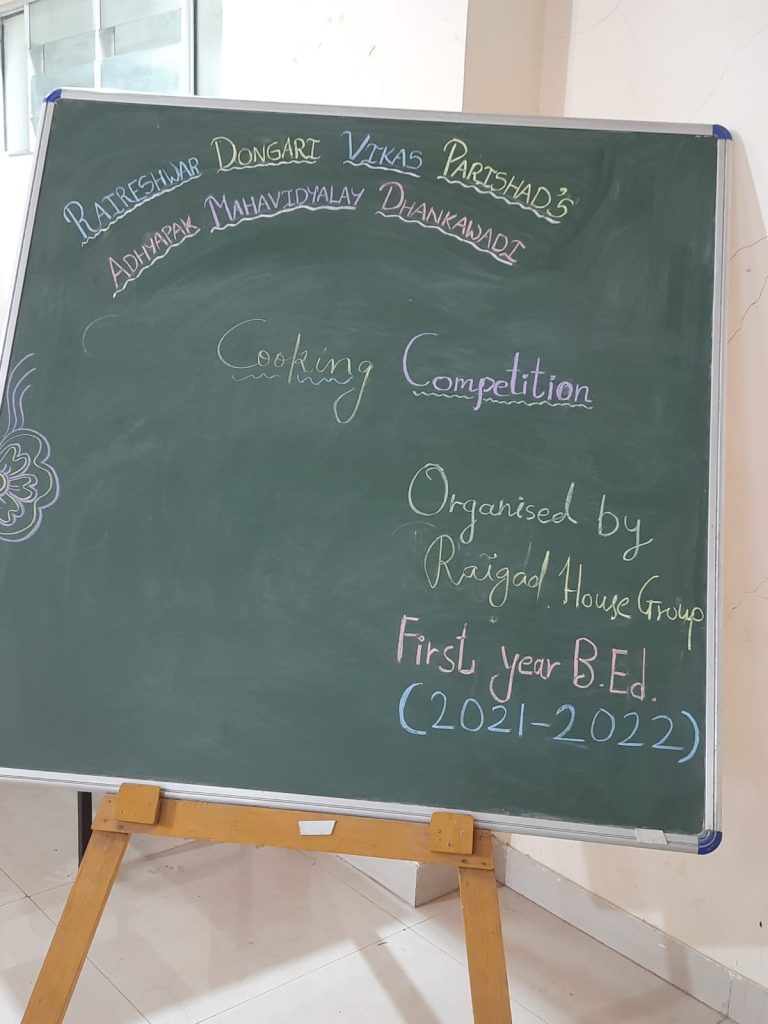 RAIRESHWAR DONGARI VIKAS PARISHAD'S
ADHYAPAK MAHAVIDYALAY DHANKAWADI
Cooking Competition
Organised by
Raigad House Group
First year B.Ed.
(2021-2022)